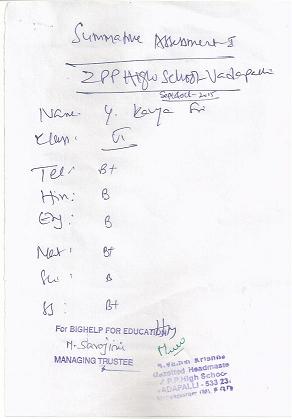 Summative Assesment-I
ZPP High School-Vadapalli
Sept/Oct-2015
Name: Y. Kavya Sri
Class: VI
Tel: B+
Hin: B
Eng: B
Mat: B+
Sci: B
SS: B+
For BIGHELP FOR EDUCATION
M. Sarojini
MANAGING TRUSTEE
Krishna
Gazetted Headmaste
Z P.P. High Schoo
ADAPALLI - 533 23